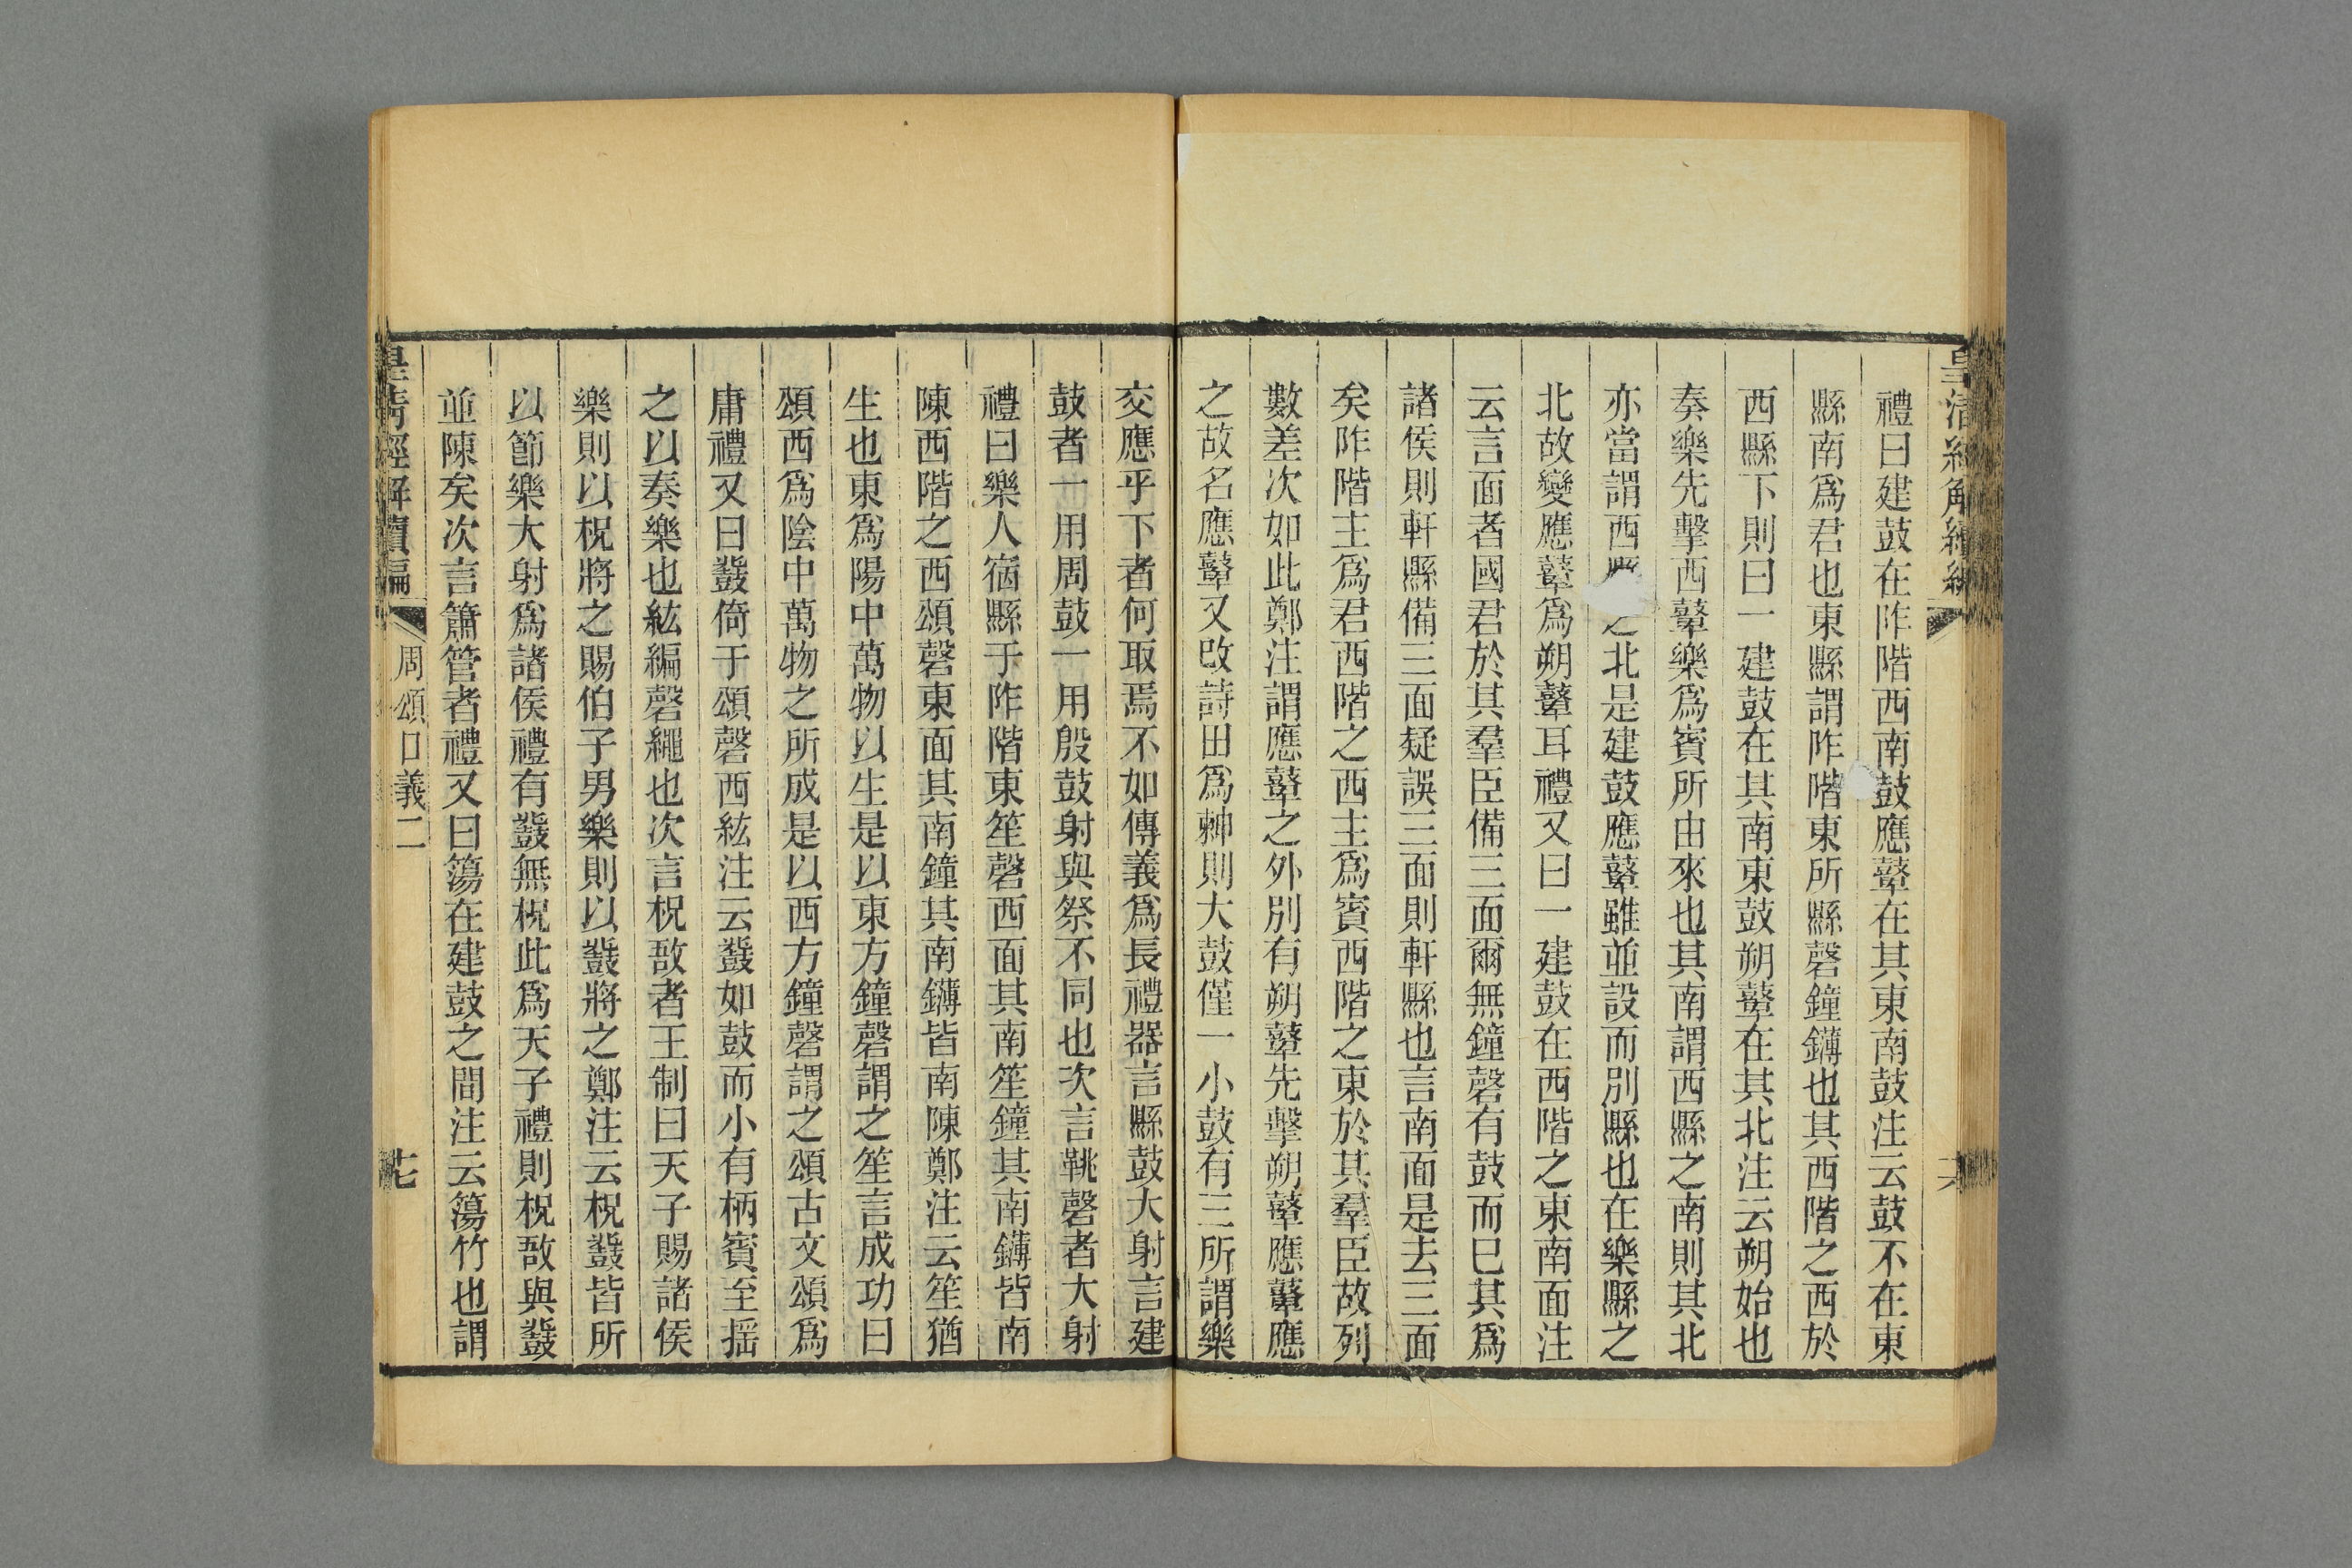 皇清經解續編
禮曰建鼓在阼階西南鼓應鼙在其東南鼓注云鼓不在東
縣南爲君也東縣謂阼階東所縣磬鐘鑮也其西階之西於
西縣下則曰一建鼓在其南東鼓朔鼙在其北注云朔始也
奏樂先擊西鼙樂爲賓所由來也其南謂西縣之南則其北
亦當謂西之北是建鼓應鼙雖並設而別縣也在樂縣之
北故變應鼙爲朔鼙耳禮又曰一建鼓在西階之東南面注
云言面者國君於其羣臣備三面爾無鐘磬有鼓而已其爲
諸侯則軒縣備三面疑誤三面則軒縣也言南面是去三面
矣阼階主爲君西階之西主爲賓西階之東於其羣臣故列
數差次如此鄭注謂應鼙之外別有朔鼙先擊朔鼙應鼙應
之故名應鼙又改詩田爲朄則大鼓僅一小鼓有三所謂樂
交應乎下者何取焉不如傳義爲長禮器言縣鼓大射言建
鼓者一用周鼓一用殷鼓射與祭不同也次言鞉磬者大射
禮曰樂人宿縣于阼階東笙磬西面其南笙鐘其南鑮皆南
陳西階之西頌磬東面其南鐘其南鑮皆南陳鄭注云笙猶
生也東爲陽中萬物以生是以東方鐘磬謂之笙言成功曰
頌西爲陰中萬物之所成是以西方鐘磬謂之頌古文頌爲
庸禮又曰鼗倚于頌磬西紘注云鼗如鼓而小有柄賓至搖
之以奏樂也紘編磬繩也次言柷敔者王制曰天子賜諸侯
樂則以柷將之賜伯子男樂則以鼗將之鄭注云柷鼗皆所
以節樂大射爲諸侯禮有鼗無柷此爲天子禮則柷敔與鼗
並陳矣次言簫管者禮又曰簜在建鼓之間注云簜竹也謂
皇清經解續編 周頌口義二